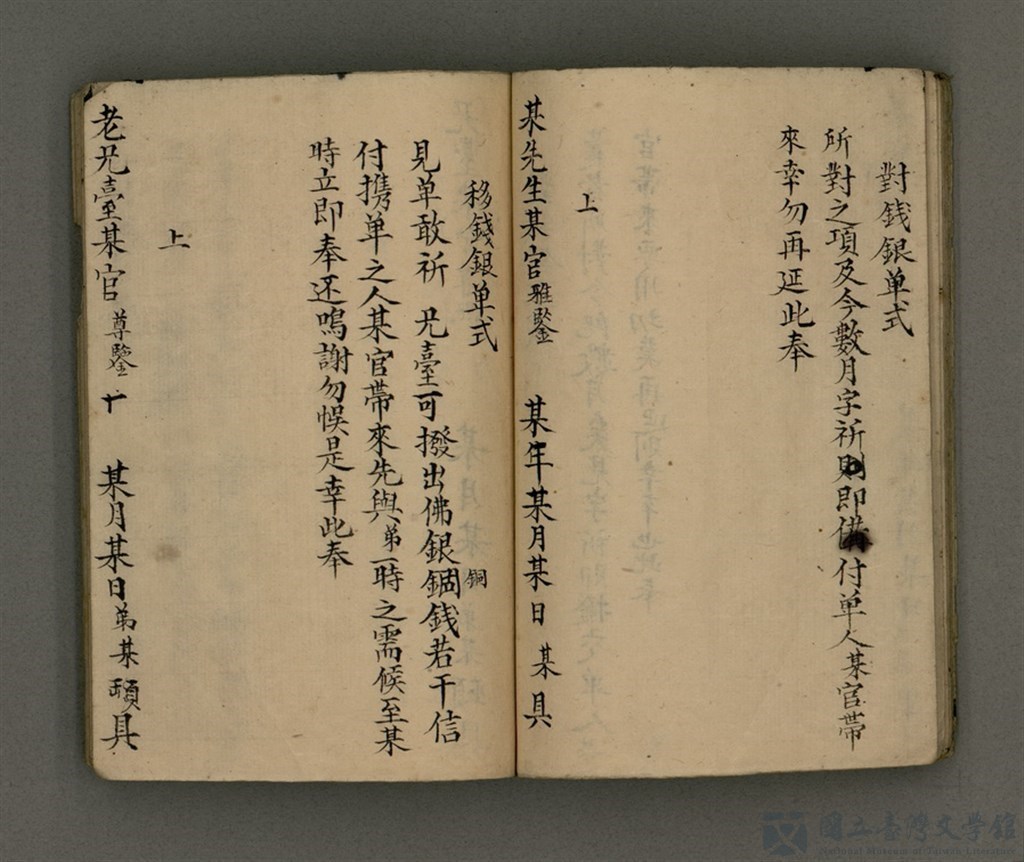 對錢銀单式
所對之項及今數月字祈則即備付单人某官帶
來幸勿再延此奉
上
某先生某官雅鑒 某年某月某日 某具
移錢銀单式
見单敢祈 兄臺可撥出佛銀錮錢若干信
銅
付携单之人某官帶來先與弟一時之需候至某
時立即奉还鳴謝勿悞是幸此奉
上
老兄臺某官尊鑒 某月某日弟某頓具
國立臺灣文學館
National Museum of Taiwan Literature